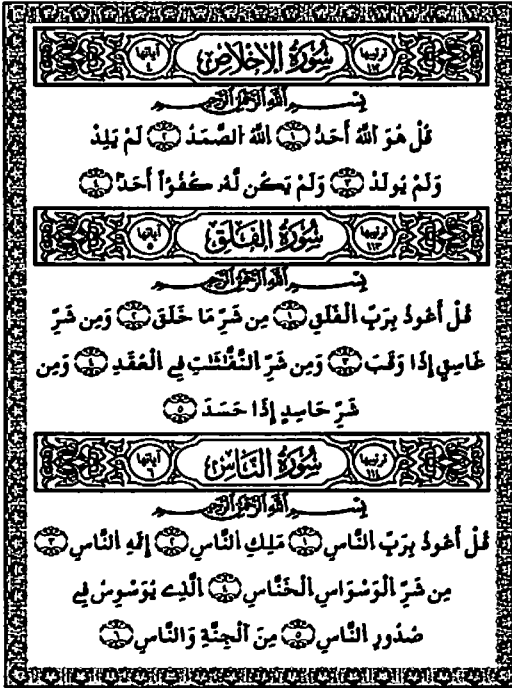 ترتيبها ١١٢ سُورَةُ الإِخْلَاصِ آياتها ٤
بِسْمِ اللَّهِ الرَّحْمَٰنِ الرَّحِيمِ
قُلْ هُوَ اللَّهُ أَحَدٌ ١ اللَّهُ الصَّمَدُ ٢ لَمْ يَلِدْ
وَلَمْ يُولَدْ ٣ وَلَمْ يَكُن لَّهُ كُفُؤاً أَحَدٌ ٤
ترتيبها ١١٣ سُورَةُ الْفَلَقِ آياتها ٥
بِسْمِ اللَّهِ الرَّحْمَٰنِ الرَّحِيمِ
قُلْ أَعُوذُ بِرَبِّ الْفَلَقِ ١ مِن شَرِّ مَا خَلَقَ ٢ وَمِن شَرِّ
غَاسِقٍ إِذَا وَقَبَ ٣ وَمِن شَرِّ النَّفَّٰثَٰتِ فِے الْعُقَدِ ٤ وَمِن
شَرِّ حَاسِدٍ إِذَا حَسَدَ ٥
ترتيبها ١١٤ سُورَةُ النَّاسِ آياتها ٦
بِسْمِ اللَّهِ الرَّحْمَٰنِ الرَّحِيمِ
قُلْ أَعُوذُ بِرَبِّ النَّاسِ ١ مَلِكِ النَّاسِ ٢ إِلَٰهِ النَّاسِ ٣
مِن شَرِّ الْوَسْوَاسِ الْخَنَّاسِ ٤ الَّذِے يُوَسْوِسُ فِے
صُدُورِ النَّاسِ ٥ مِنَ الْجِنَّةِ وَالنَّاسِ ٦